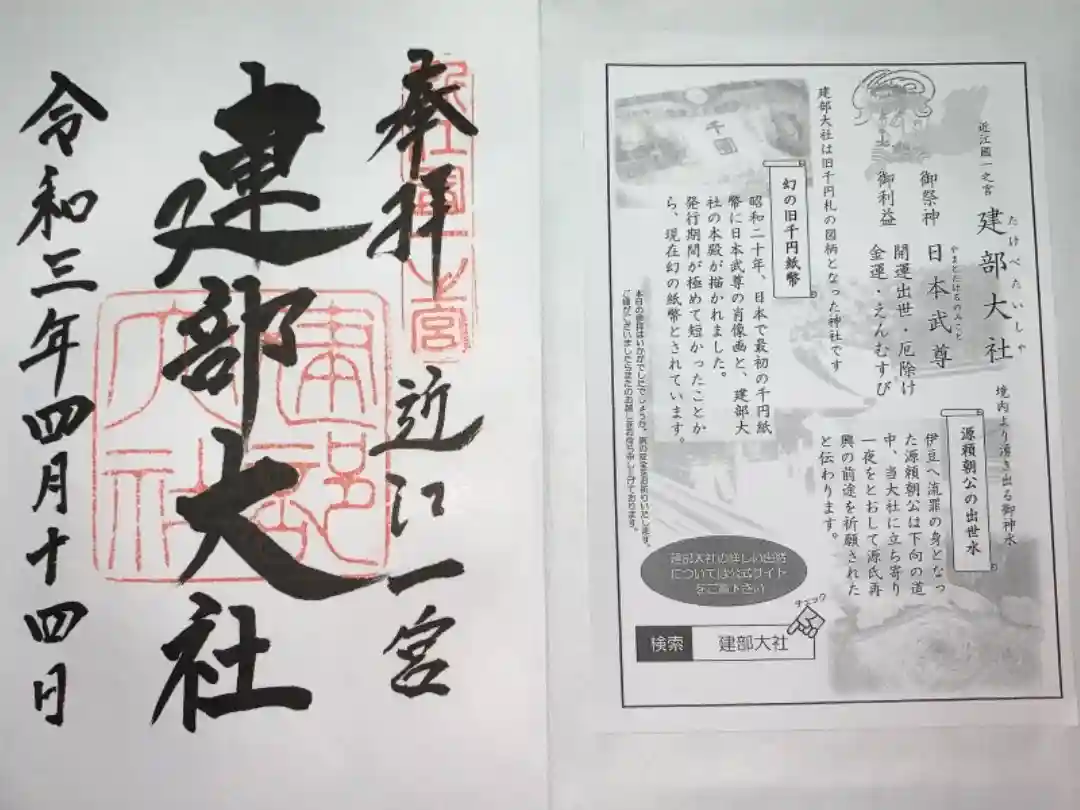 奉拝
近江一宮
建部大社
令和三年四月十四日
近江國一之宮
建部大社
たけべたいしゃ
御祭神 日本武尊
やまとたけるのみこと
御利益 開運出世・厄除け
金運・えんむすび
建部大社は旧千円札の図柄となった神社です
千圓
幻の旧千円紙幣
昭和二十年、日本で最初の千円紙
幣に日本武尊の肖像画と、建部大
社の本殿が描かれました。
発行期間が極めて短かったことか
ら、現在幻の紙幣とされています。
境内より湧き出る御神水
源頼朝公の出世水
伊豆へ流罪の身となっ
た源頼朝公は下向の道
中、当大社に立ち寄り
一夜をとおして源氏再
興の前途を祈願された
と伝わります。
建部大社の詳しい由緒
については公式サイト
をご覧下さい
チェック
検索 建部大社